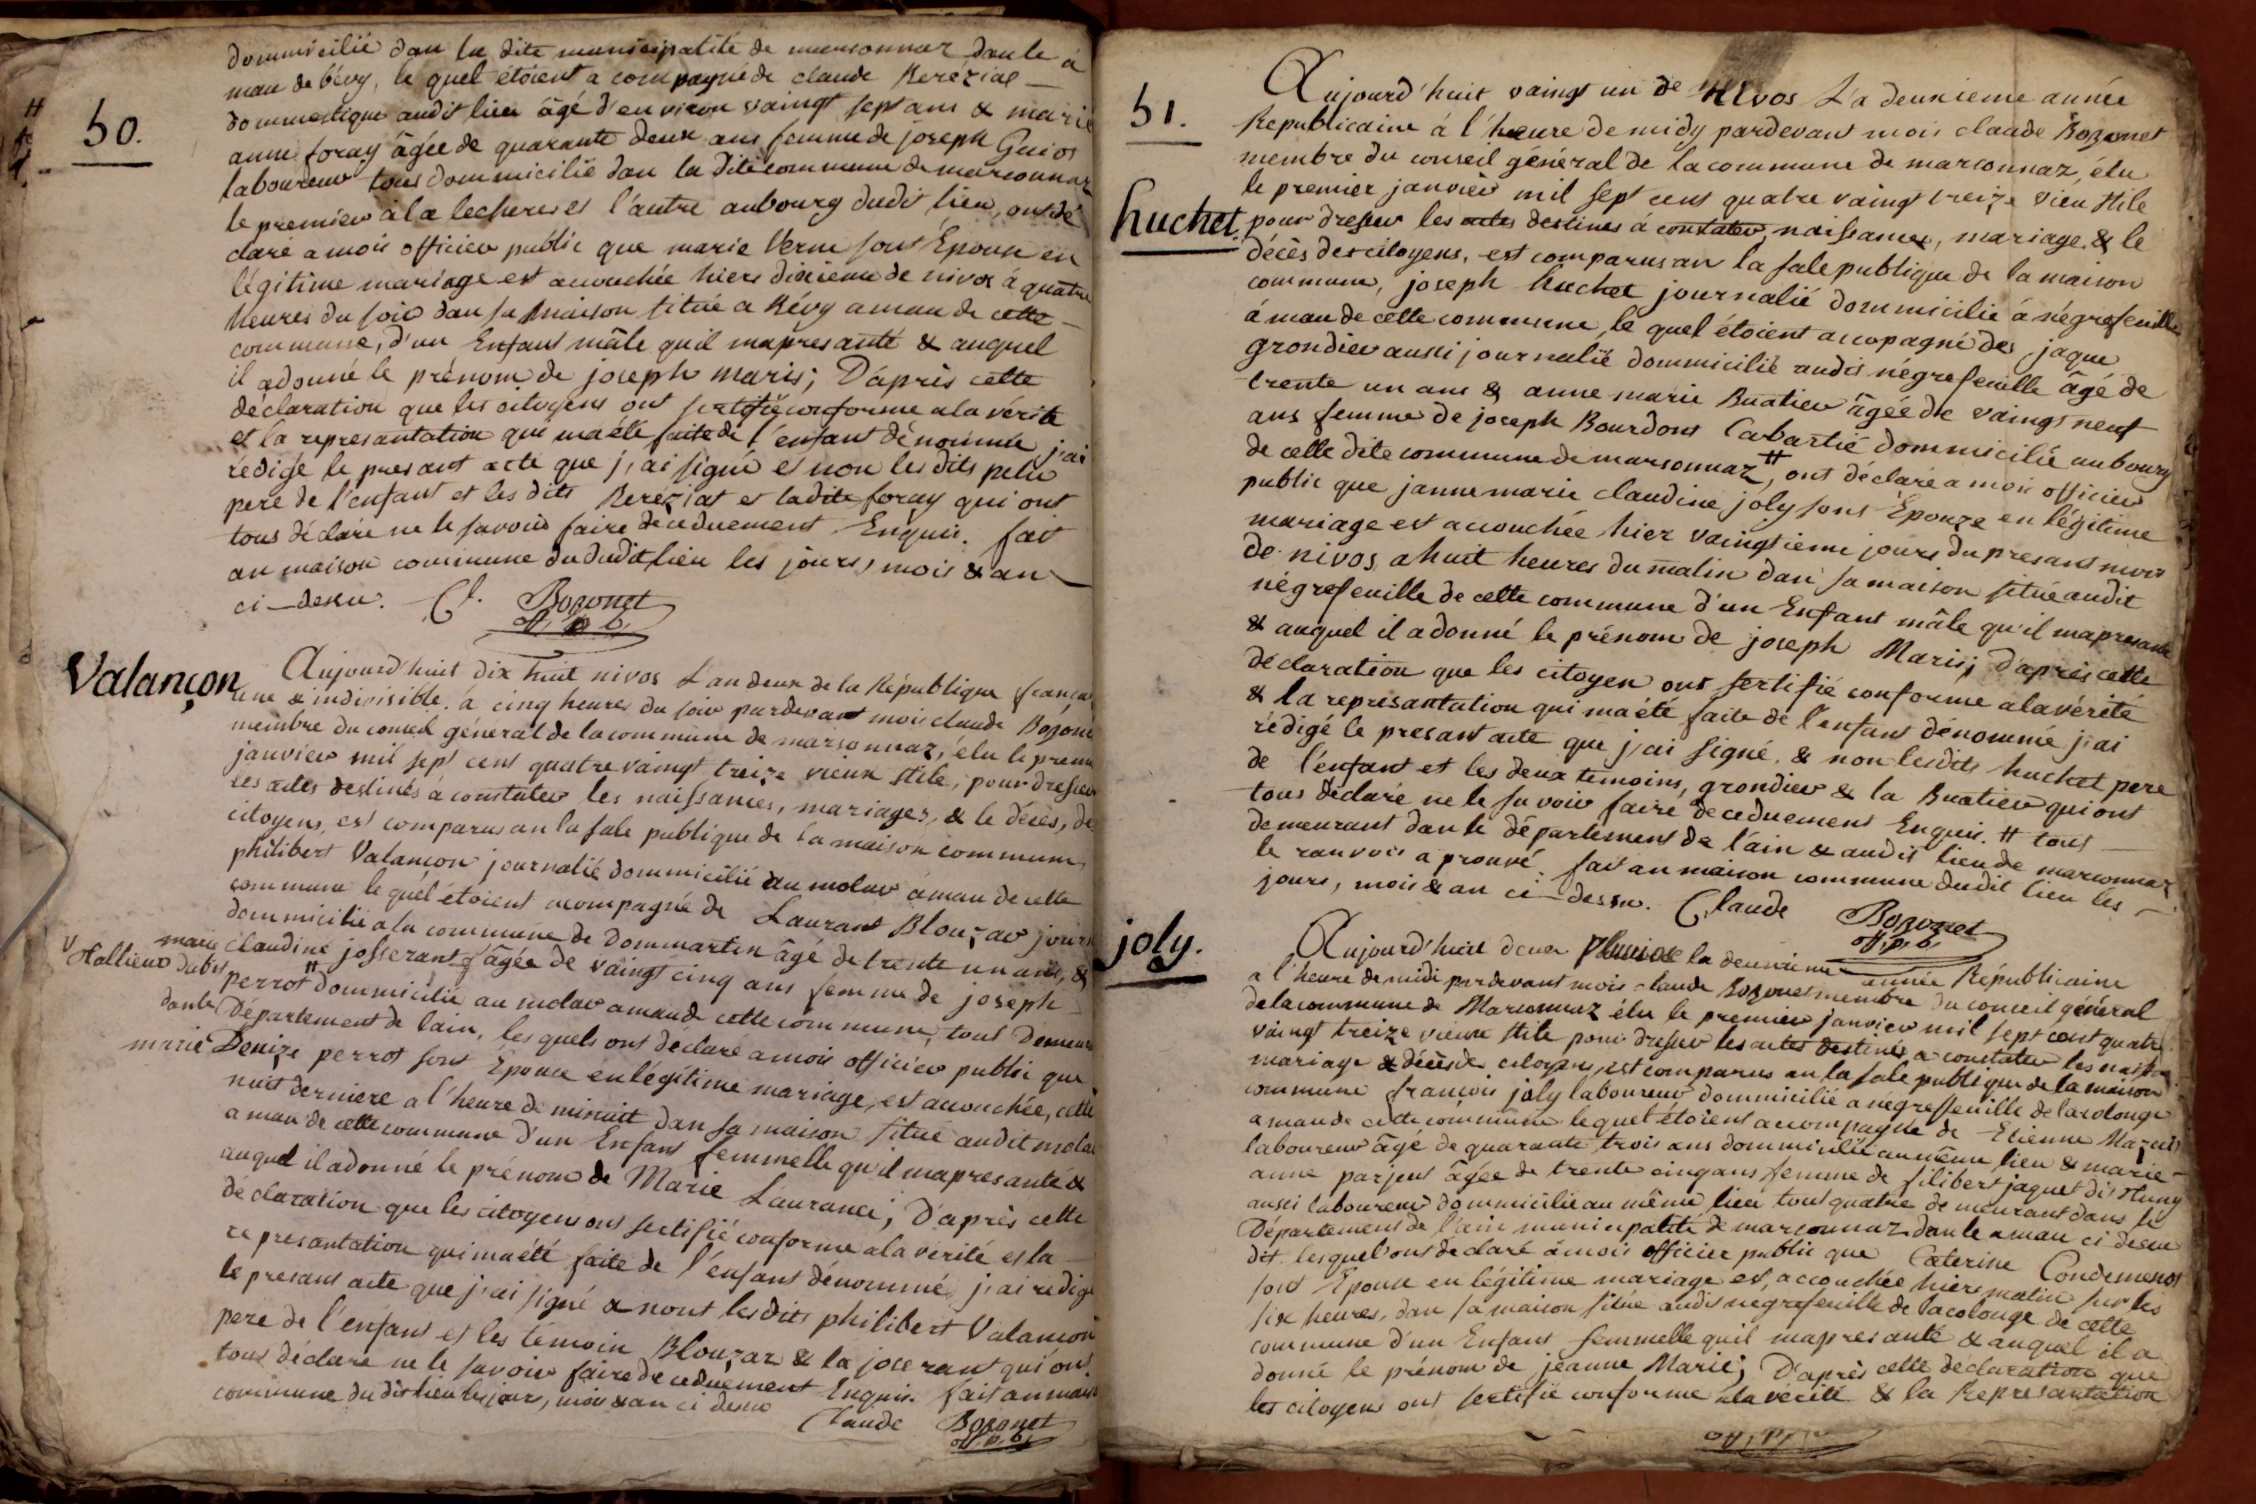 50.
dommicilié dan la dite municipalité de marsonnaz dan le a
man de bévy, le quel étoient a compagné de claude Bereziac
dommestique audit lieu âgé d'environ vaingt sept ans & marie
anne foray âgée de quarante deux ans femme de joseph Guios
laboureur tous dommicilié dan la dite commune de marsonnaz
le premier à la lecheres et l'autre aubourg dudit lieu, ont dé
claré a mois officier public que marie Verne sont Epouse en
légitime mariage est acouchée hiers dixieme de nivos à quatre
heures du soir dan sa maison situé a Bévy aman de cette
commune, d'un Enfant mâle quil mapresanté & auquel
il adonné le prénom de joseph maris; D'après cette
déclaration que les citoyens ont sertifié conforme a la vérité
et la représantation qui ma été faite de l'enfant dénommée j'ai
rédigé le presant acte que j,ai signé et non les dits
pere de l'enfant et les dits Bereziat et ladite foray qui ont
tous déclaré ne le savoir faire de ceduement Enquis. fait
an maison commune du dudit lieu les jours, mois & an
ci-desu. Cl. Bozonet
off. p. b.
Valançon
Aujourd'huit dix huit nivos L'an deux de la République française
une & indivisible. à cinq heures du soir pardevant mois claude Bozonet
membre du conseil général de la commune de marsonnaz, élu le premier
janvier mil sept cent quatre vaingt treize vieux stile, pour dresser
les actes destinés à constater les naissances, mariages, & le décès, de
citoyens, est comparus an la sale publique de la maison commune,
philibert Valançon journalié dommicilié au molar aman de cette
commune le quel étoient acompagné de Laurant Blouzar journ
dommicilié a la commune de Dommartin âgé de trente un ans, &
marie claudine josserant âgée de vaingt cinq ans femme de joseph
perrot # dommicilié au molar amande cette commune, tous Demeur
dan le Département de lain, lesquels ont declaré a mois officier public que
marie Denize perrot sont Epouse en légitime mariage, est acouchée, cette
nuit derniere a l'heure de minuit dan sa maison situé audit molar
a man de cette commune d'un Enfant femmelle qu'il mapresanté &
auquel il adonné le prénom de Marie Laurance; D'après cette
déclaration que les citoyens ont sertifié conforme à la vérité et la
représantation qui ma été faite de l'enfant dénommé, j'ai rédigé
le presant acte que j'ai signé & nont lesdits philibert Valançon
pere de l'enfant et les témoin Blouzar & la joserant qui ont
tous déclaré ne le savoir faire de ceduement Enquis. fait an maison
commune du dit lieu les jours, mois & an ci desu
Claude Bozonet
off. p. b.
51.
Aujourd'huit vaingt un de Nivos L'a deuxieme année
Republicaine à l'heure de midy pardevant mois claude Bozonet
membre du conseil général de la commune de marsonnaz, élu
le premier janvier mil sept cent quatre vaingt treize vieu stile
huchet.
pour dresser les actes destinés à constater, naissances, mariage, & le
décès des citoyens, est comparus an la sale publique de la maison
commune, joseph huchet journalié dommicilié à négrefeuille
à man de cette commune, le quel étoient accopagné des jaque
grondier aussi journalié dommicilié audit négrefeuille âgé de
trente un ans & anne marie Buatier âgée de vaingt neuf
ans femme de joseph Bourdons Cabartié dommicilié au bourg
de cette dite commune de marsonnaz #, ont déclaré a mois officier
public que janne marie claudine joly sont Epouze en légitime
mariage est acouchée hier vaingtieme jours du presant mois
de nivos a huit heures du matin dan sa maison situé audit
négrefeuille de cette commune d'un Enfant mâle qu'il mapresanté
& auquel il adonné le prénom de joseph Maris; d'après cette
déclaration que les citoyen ont sertifié conforme a la vérité
& la représantation qui ma été faite de l'enfant dénommé j'ai
rédigé le presant acte que j,ai signé. & non lesdits huchet pere
de l'enfant et les deux temoins, grondier & la Buatier qui ont
tous déclaré ne le savoir faire de ceduement Enquis. # tous
demeurant dan le département de l'ain & audit lieu de marsonnaz
le ranvois aprouvé. fait an maison commune dudit lieu les
jours, mois & an ci-desu. Claude Bozonet
off. p. b.
joly.
Aujourd'huit deux Pluviose la deuxieme année Républicaine
a l'heure de midi pardevant mois claude Bozonet membre du conseil général
de la commune de Marsonnaz élu le premier janvier mil sept cent quatre
vaingt treize vieux stile pour dresser les actes destinés a constater les naiss
mariage & décès de citoyens, est comparus an la sale publique de la maison
commune françois joly laboureur dommicilié a negrefeuille de lacolonge
amande cette commune lequel étoient accompagné de Etienne Mazuis
laboureur âgé de quarante trois ans dommicilié au même lieu & marie
anne parjent âgée de trente cinq ans femme de filibert jaquet dit
aussi laboureur dommicilié au même lieu tout quatre demeurant dans le
Département de l'ain municipalité de marsonnaz dan le aman ci desu
dit. lesquels ont déclaré à mois officier public que Caterine Condemenos
sont Epouse en légitime mariage est, accouchée hiers matin sur les
six heures, dan sa maison située audit négrefeuille de lacolonge de cette
commune d'un Enfant femmelle quil mapresanté & auquel il a
donné le prénom de jeanne Marie; D'après cette déclaration que
les citoyens ont sertifié conforme a la vérité & la Représantation
off. p. b.